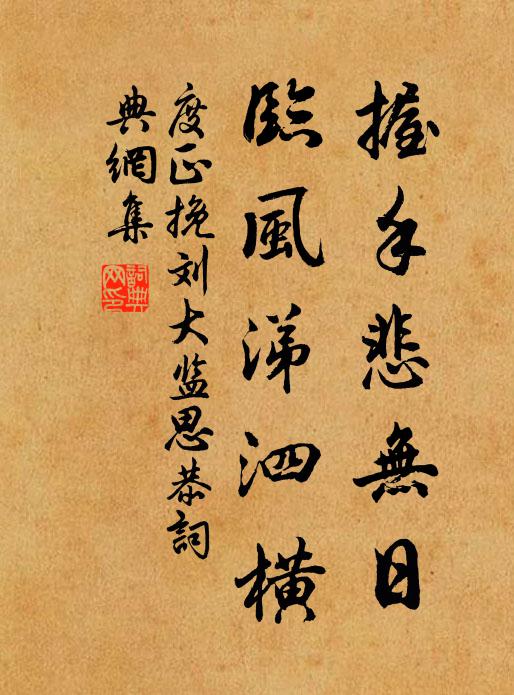 握手悲無日
臨風涕泗橫
度正挽刘大监思恭詞
典網集
詞典网印